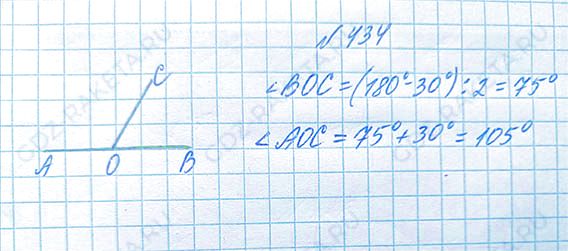 № 434
∠BOC = (180° - 30°) : 2 = 75°
∠AOC = 75° + 30° = 105°
C
A O B
GDZ-RAKETA.RU